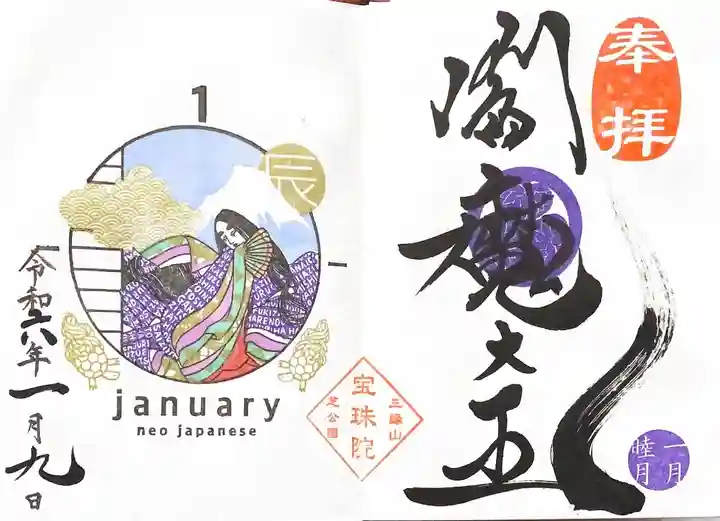 奉拝
閻魔大王
一月
睦月
三縁山
宝珠院
芝公園
1
辰
january
neo japanese
令和六年一月九日